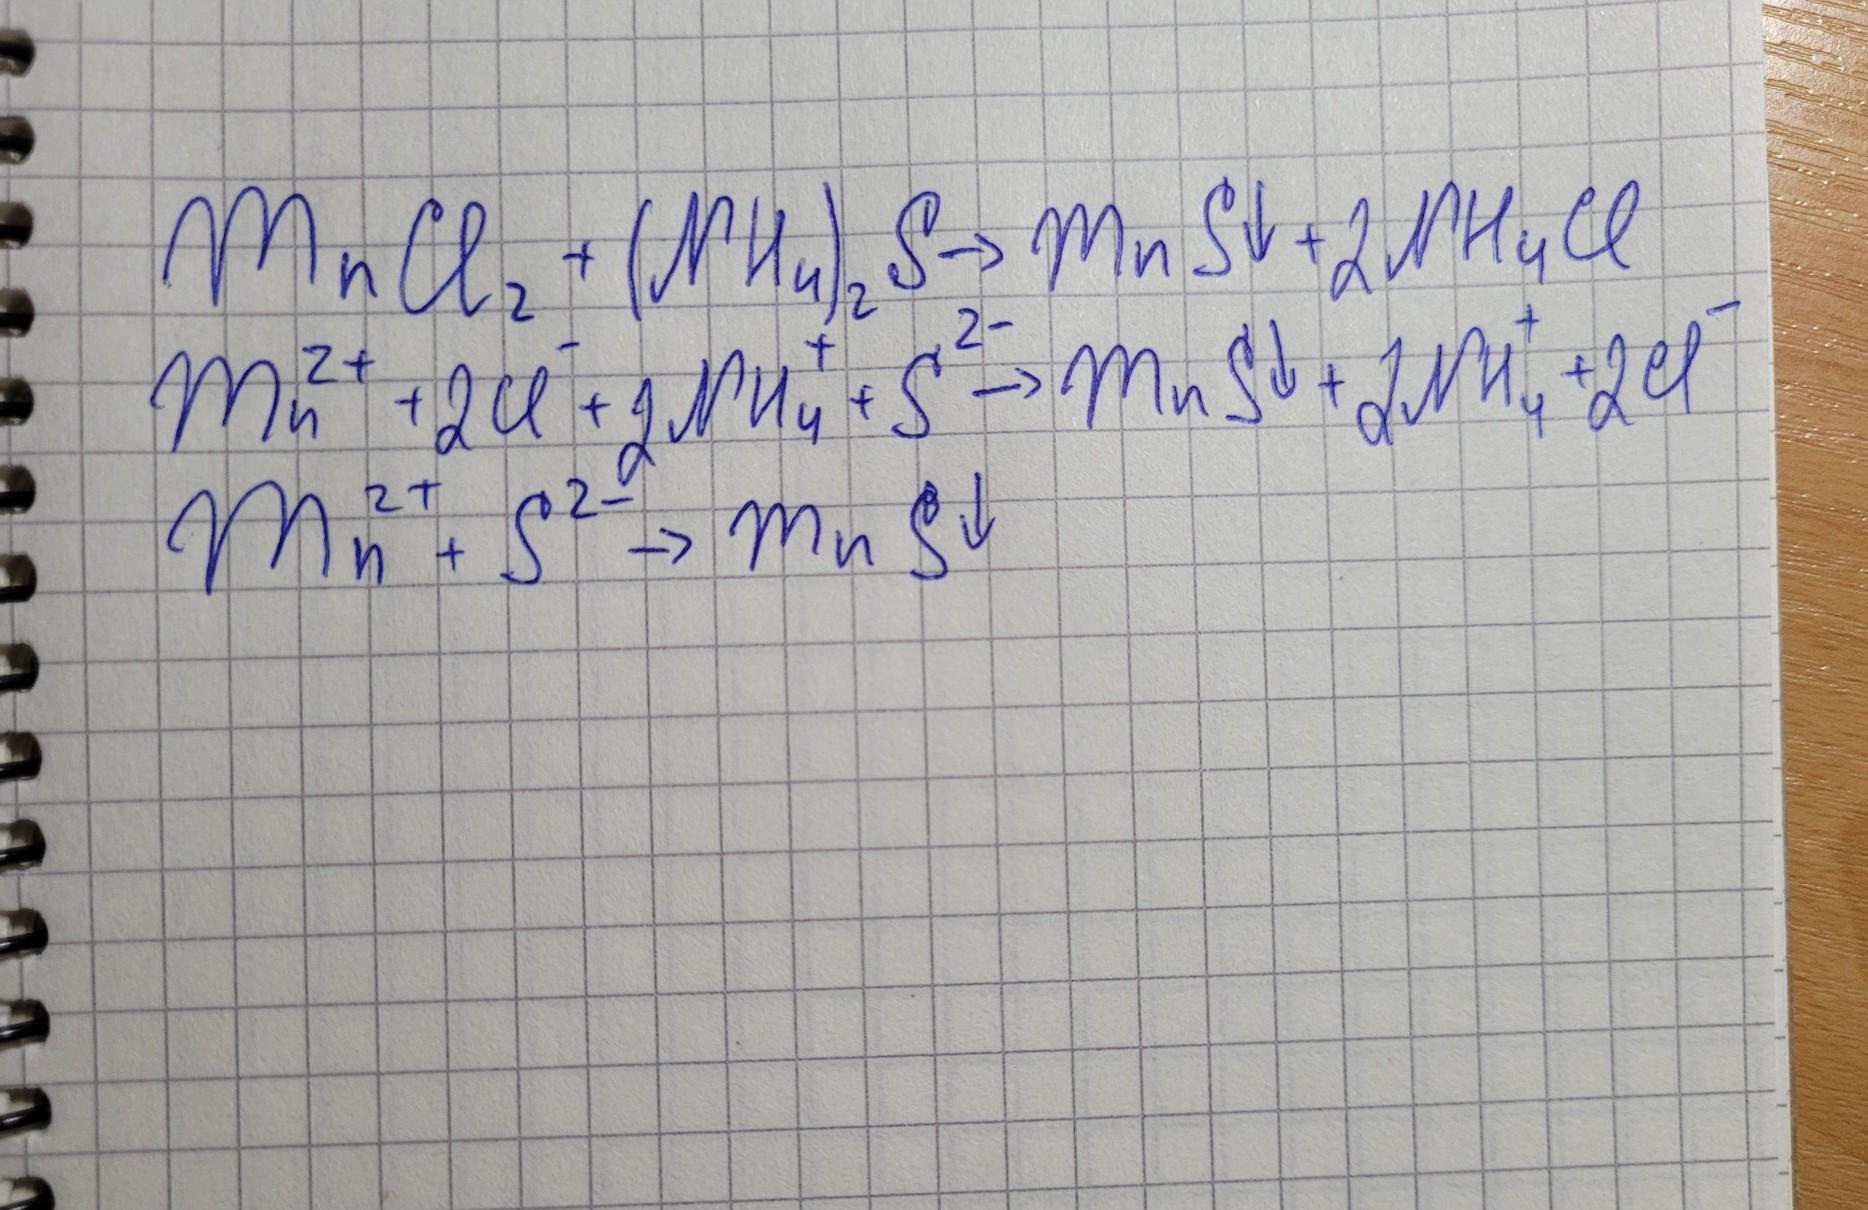 MnCl₂ + (NH₄)₂S → MnS↓ + 2NH₄Cl
Mn²⁺ + 2Cl⁻ + 2NH₄⁺ + S²⁻ → MnS↓ + 2NH₄⁺ + 2Cl⁻
Mn²⁺ + S²⁻ → MnS↓